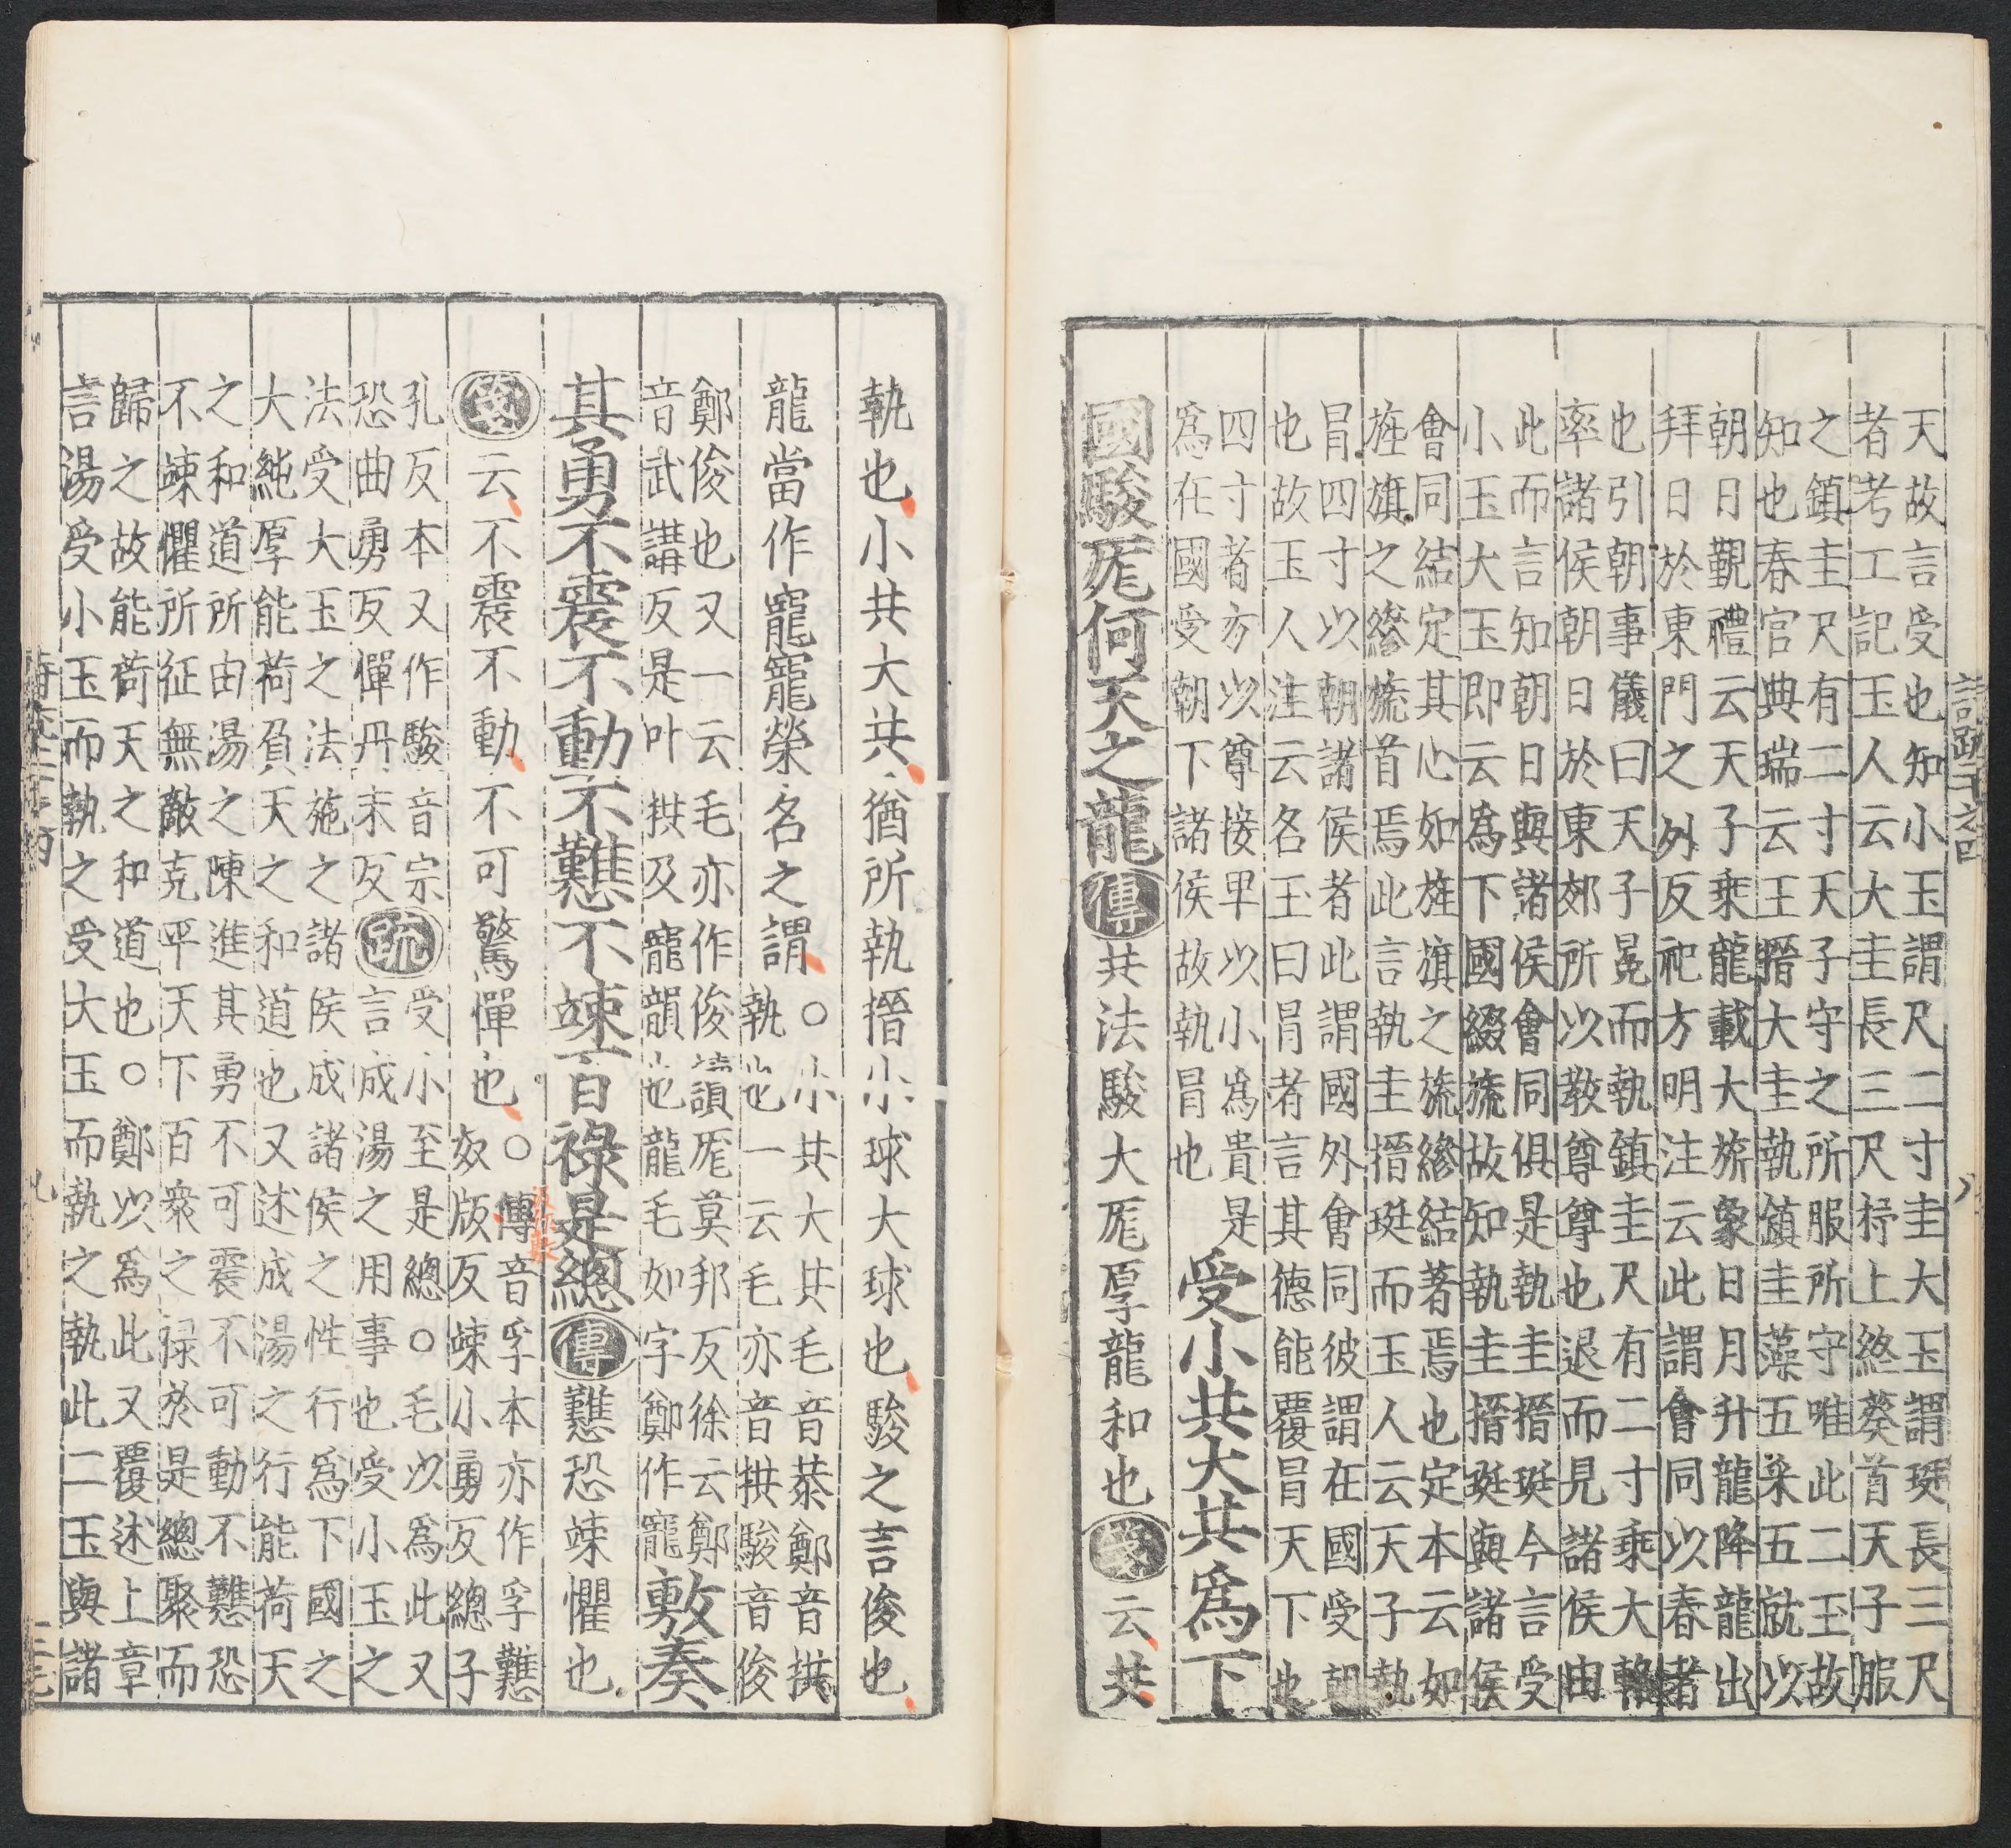 天故言受也知小玉謂尺二寸圭大玉謂珽長三尺
者考工記玉人云大圭長三尺杼上終葵首天子服
之鎮圭尺有二寸天子守之所服所守唯此二玉故
知也春官典瑞云王搢大圭執鎮圭藻五采五就以
朝日覲禮云天子乘龍載大旂象日月升龍降龍出
拜日於東門之外反祀方明注云此謂會同以春者
也引朝事儀曰天子冕而執鎮圭尺有二寸乘大輅
率諸侯朝日於東郊所以教尊尊也退而見諸侯由
此而言知朝日與諸侯會同俱是執圭搢珽今言受
小玉大玉即云為下國綴旒故知執圭搢珽與諸侯
會同結定其心如旌旗之旒縿結著焉也定本云如
旌旗之縿旒首焉此言執圭搢珽而玉人云天子執
冒四寸以朝諸侯者此謂國外會同彼謂在國受朝
也故玉人注云名玉曰冒者言其德能覆冒天下也
四寸者方以尊接卑以小為貴是
為在國受朝下諸侯故執冒也
受小共大共為下
國駿厖何天之龍
傳
共法駿大厖厚龍和也
箋
云共
執也小共大共猶所執搢小球大球也駿之言俊也
龍當作寵寵榮名之謂○
小共大共毛音恭鄭音拱
執也一云毛亦音拱駿音俊
鄭俊也又一云毛亦作俊讀厖莫邦反徐云鄭
音武講反是叶拱及寵韻也龍毛如字鄭作寵
敷奏
其勇不震不動不戁不竦百祿是總
傳
戁恐竦懼也
箋
云不震不動不可驚憚也○
傳音孚本亦作孚戁
奻版反竦小勇反總子
孔反本又作駿音宗
恐曲勇反憚丹末反
疏
受小至是總○毛以為此又
言成湯之用事也受小玉之
法受大玉之法施之諸侯成諸侯之性行為下國之
大純厚能荷負天之和道也又述成湯之行能荷天
之和道所由湯之陳進其勇不可震不可動不戁恐
不竦懼所征無敵克平天下百衆之祿於是總聚而
歸之故能荷天之和道也○鄭以為此又覆述上章
言湯受小玉而執之受大玉而執之執此二玉與諸